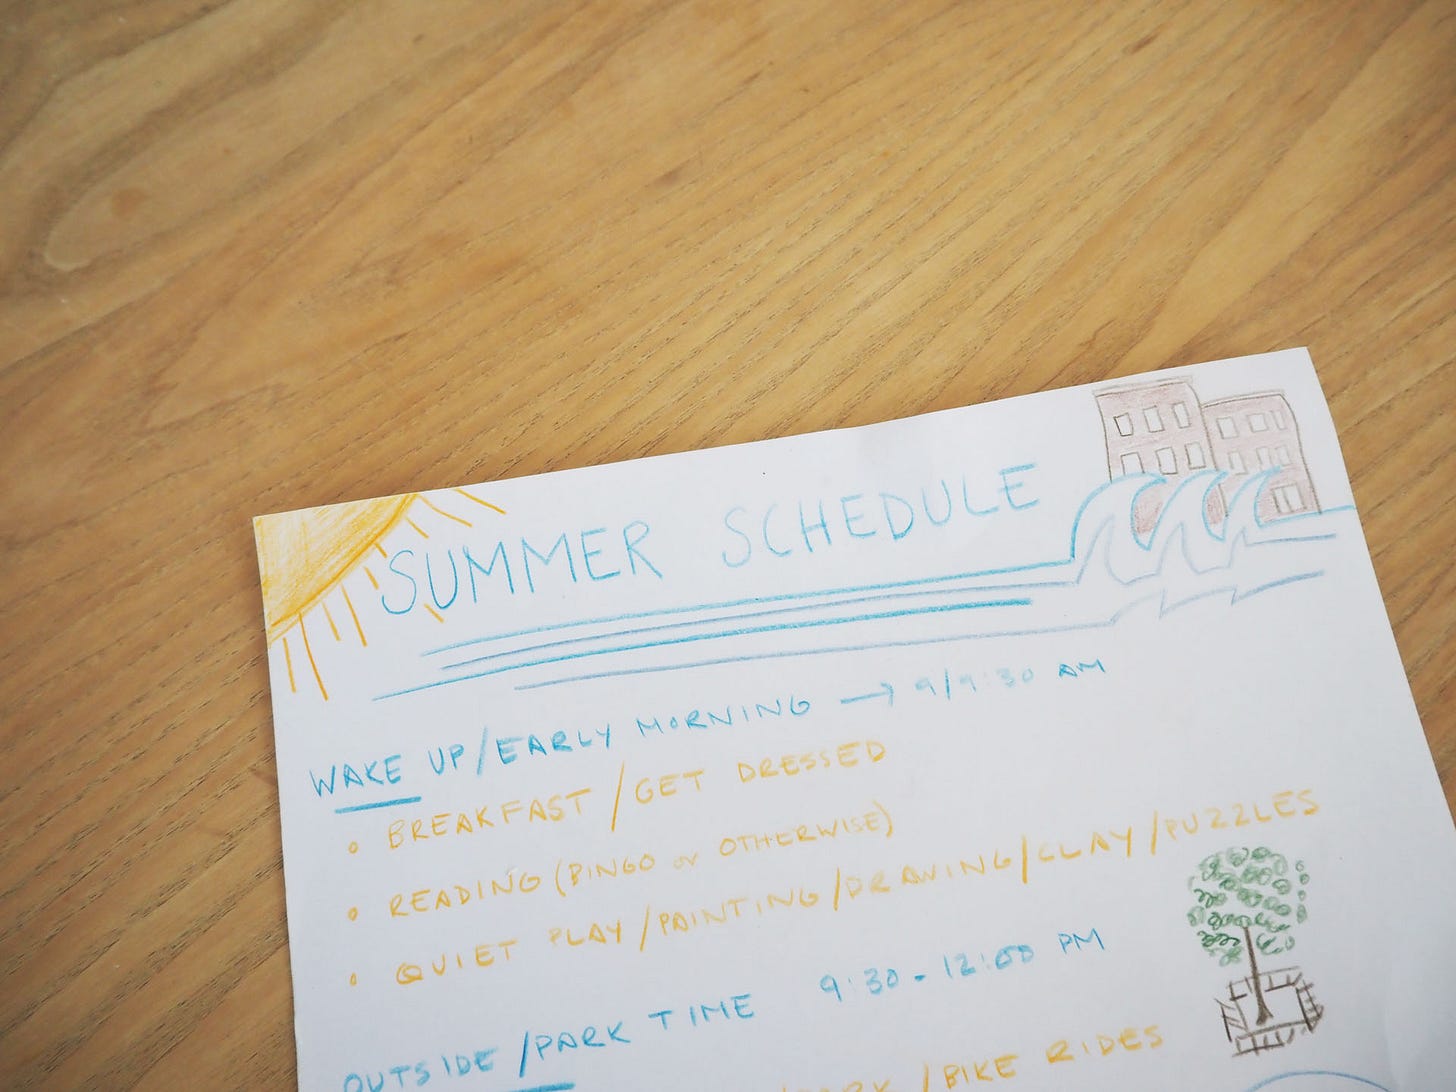 SUMMER SCHEDULE
WAKE UP/EARLY MORNING → 9/9:30 AM
• BREAKFAST/GET DRESSED
• READING (BINGO or OTHERWISE)
• QUIET PLAY/PAINTING/DRAWING/CLAY/PUZZLES
OUTSIDE/PARK TIME 9:30-12:00 PM
/BIKE RIDES